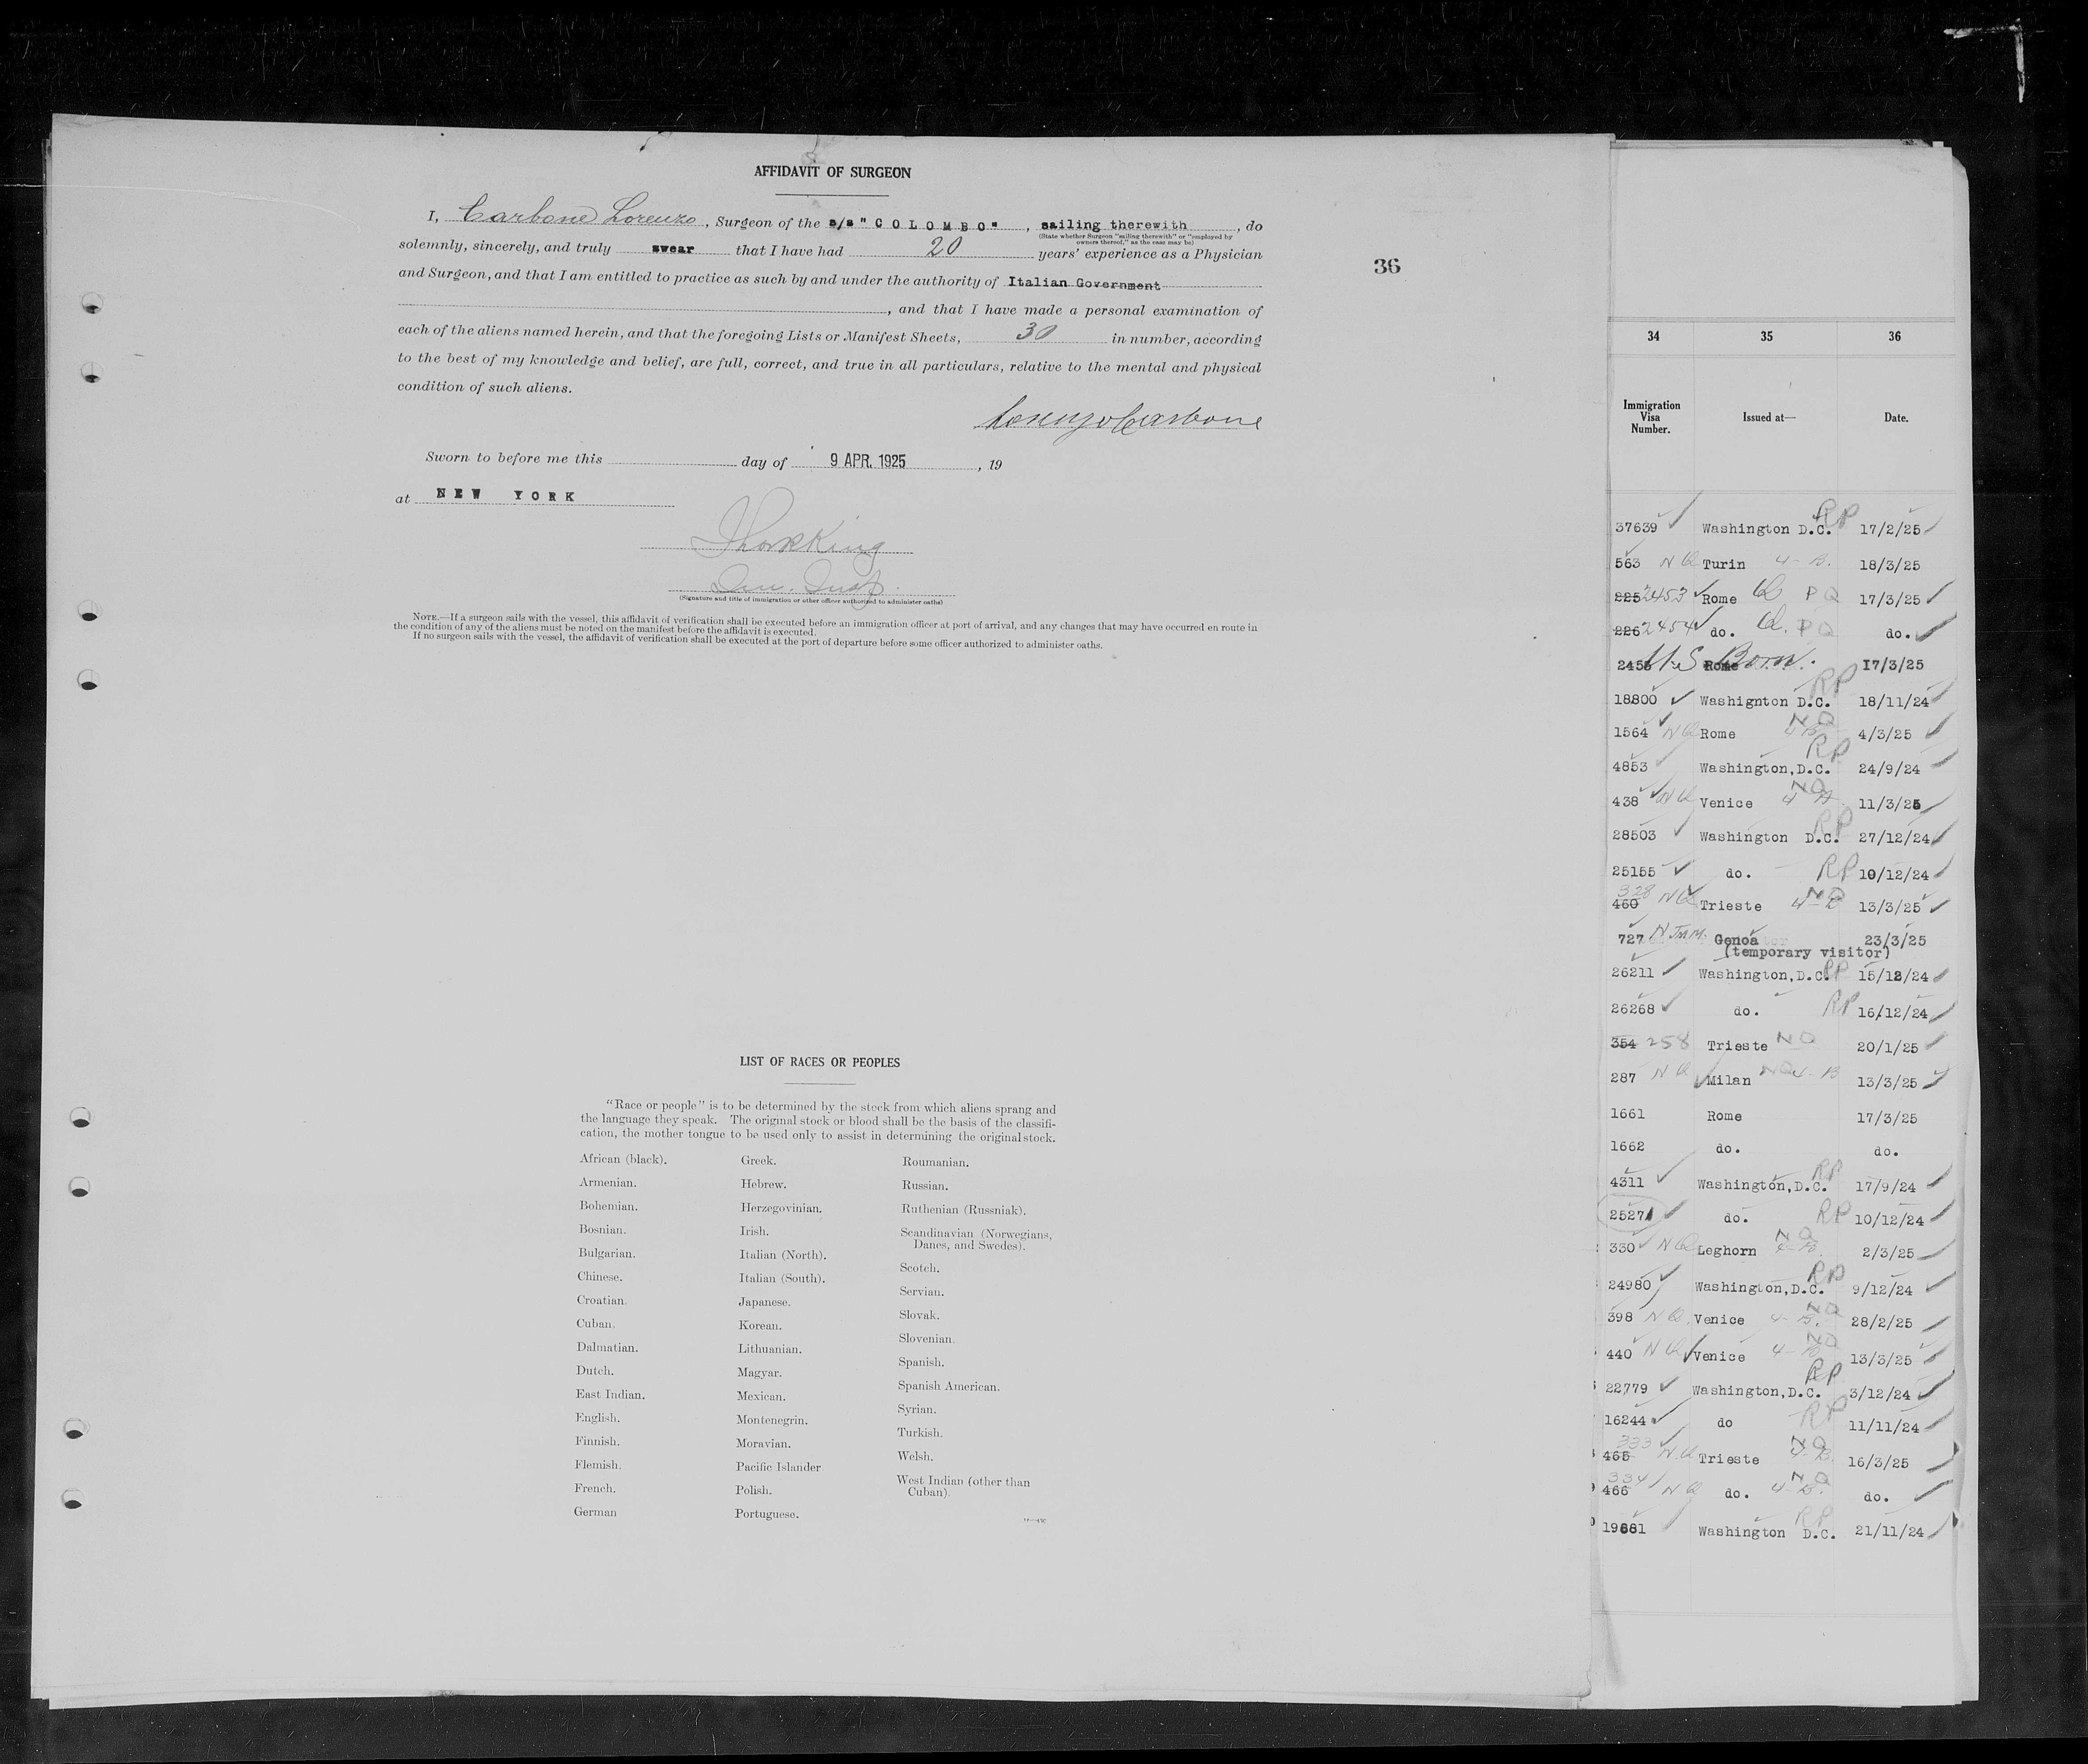 AFFIDAVIT OF SURGEON
I, Carbone Lorenzo, Surgeon of the s/s "COLOMBO", sailing therewith, do
(State whether Surgeon "sailing therewith" or "employed by
owners thereof," as the case may be)
solemnly, sincerely, and truly swear that I have had 20 years' experience as a Physician
and Surgeon, and that I am entitled to practice as such by and under the authority of Italian Government
, and that I have made a personal examination of
each of the aliens named herein, and that the foregoing Lists or Manifest Sheets, 30 in number, according
to the best of my knowledge and belief, are full, correct, and true in all particulars, relative to the mental and physical
condition of such aliens.
Lorenzo Carbone
Sworn to before me this day of 9 APR. 1925, 19
at NEW YORK
(Signature and title of immigration or other officer authorized to administer oaths)
NOTE.—If a surgeon sails with the vessel, this affidavit of verification shall be executed before an immigration officer at port of arrival, and any changes that may have occurred en route in
the condition of any of the aliens must be noted on the manifest before the affidavit is executed.
If no surgeon sails with the vessel, the affidavit of verification shall be executed at the port of departure before some officer authorized to administer oaths.
36
LIST OF RACES OR PEOPLES
"Race or people" is to be determined by the stock from which aliens sprang and
the language they speak. The original stock or blood shall be the basis of the classifi-
cation, the mother tongue to be used only to assist in determining the original stock.
African (black).
Armenian.
Bohemian.
Bosnian.
Bulgarian.
Chinese.
Croatian.
Cuban.
Dalmatian.
Dutch.
East Indian.
English.
Finnish.
Flemish.
French.
German
Greek.
Hebrew.
Herzegovinian.
Irish.
Italian (North).
Italian (South).
Japanese.
Korean.
Lithuanian.
Magyar.
Mexican.
Montenegrin.
Moravian.
Pacific Islander
Polish.
Portuguese.
Roumanian.
Russian.
Ruthenian (Russniak).
Scandinavian (Norwegians,
Danes, and Swedes).
Scotch.
Servian.
Slovak.
Slovenian.
Spanish.
Spanish American.
Syrian.
Turkish.
Welsh.
West Indian (other than
Cuban).
34 35 36
Immigration
Visa
Number.
Issued at—
Date.
37639 Washington D.C. RP 17/2/25
563 NQ Turin 4-B. 18/3/25
225 2453 Rome Q PQ 17/3/25
226 2454 do. Q. PQ do.
2455 U.S Rome Born. 17/3/25
18800 Washignton D.C. RP 18/11/24
1564 NQ Rome NQ 4/3/25
4853 Washington,D.C. RP 24/9/24
438 NQ Venice NQ 11/3/25
28503 Washington D.C. RP 27/12/24
25155 do. RP 10/12/24
328
460 NQ Trieste 4-B NQ 13/3/25
727 Genoa 23/3/25
(temporary visitor)
26211 Washington,D.C. RP 15/12/24
26268 do. RP 16/12/24
354 258 Trieste NQ 20/1/25
287 NQ Milan NQ 4-B 13/3/25
1661 Rome 17/3/25
1662 do. do.
4311 Washington,D.C. RP 17/9/24
25271 do. RP 10/12/24
330 NQ Leghorn 4-B. NQ 2/3/25
24980 Washington,D.C. RP 9/12/24
398 NQ. Venice 4-B. NQ 28/2/25
440 NQ Venice 4-B NQ 13/3/25
22779 Washington,D.C. RP 3/12/24
16244 do RP 11/11/24
333
465 NQ Trieste 4-B. NQ 16/3/25
334
466 NQ do. 4-B. NQ do.
19881 Washington D.C. RP 21/11/24